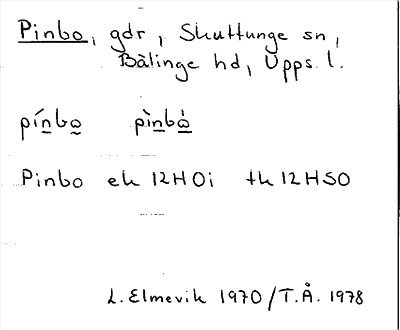 Pinbo, gdr, Skuttunge sn,
Bälinge hd, Upps. l.
pínbo pìnbò
Pinbo ek 12H0i tk 12HSO
L. Elmevik 1970/T.Å. 1978